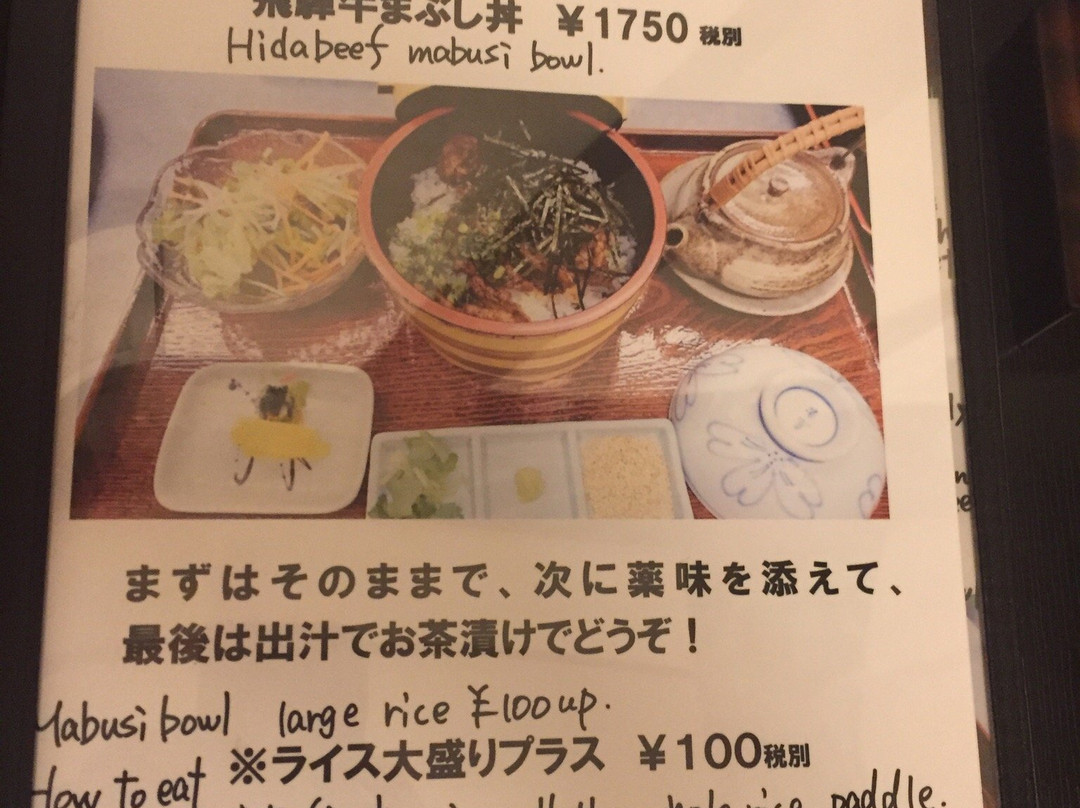 飛騨牛まぶし丼 ¥1750 税別
Hidabeef mabusi bowl.
まずはそのままで、次に薬味を添えて、
最後は出汁でお茶漬けでどうぞ！
Mabusi bowl large rice ¥100 up.
※ライス大盛りプラス ¥100税別
How to eat
rice paddle.